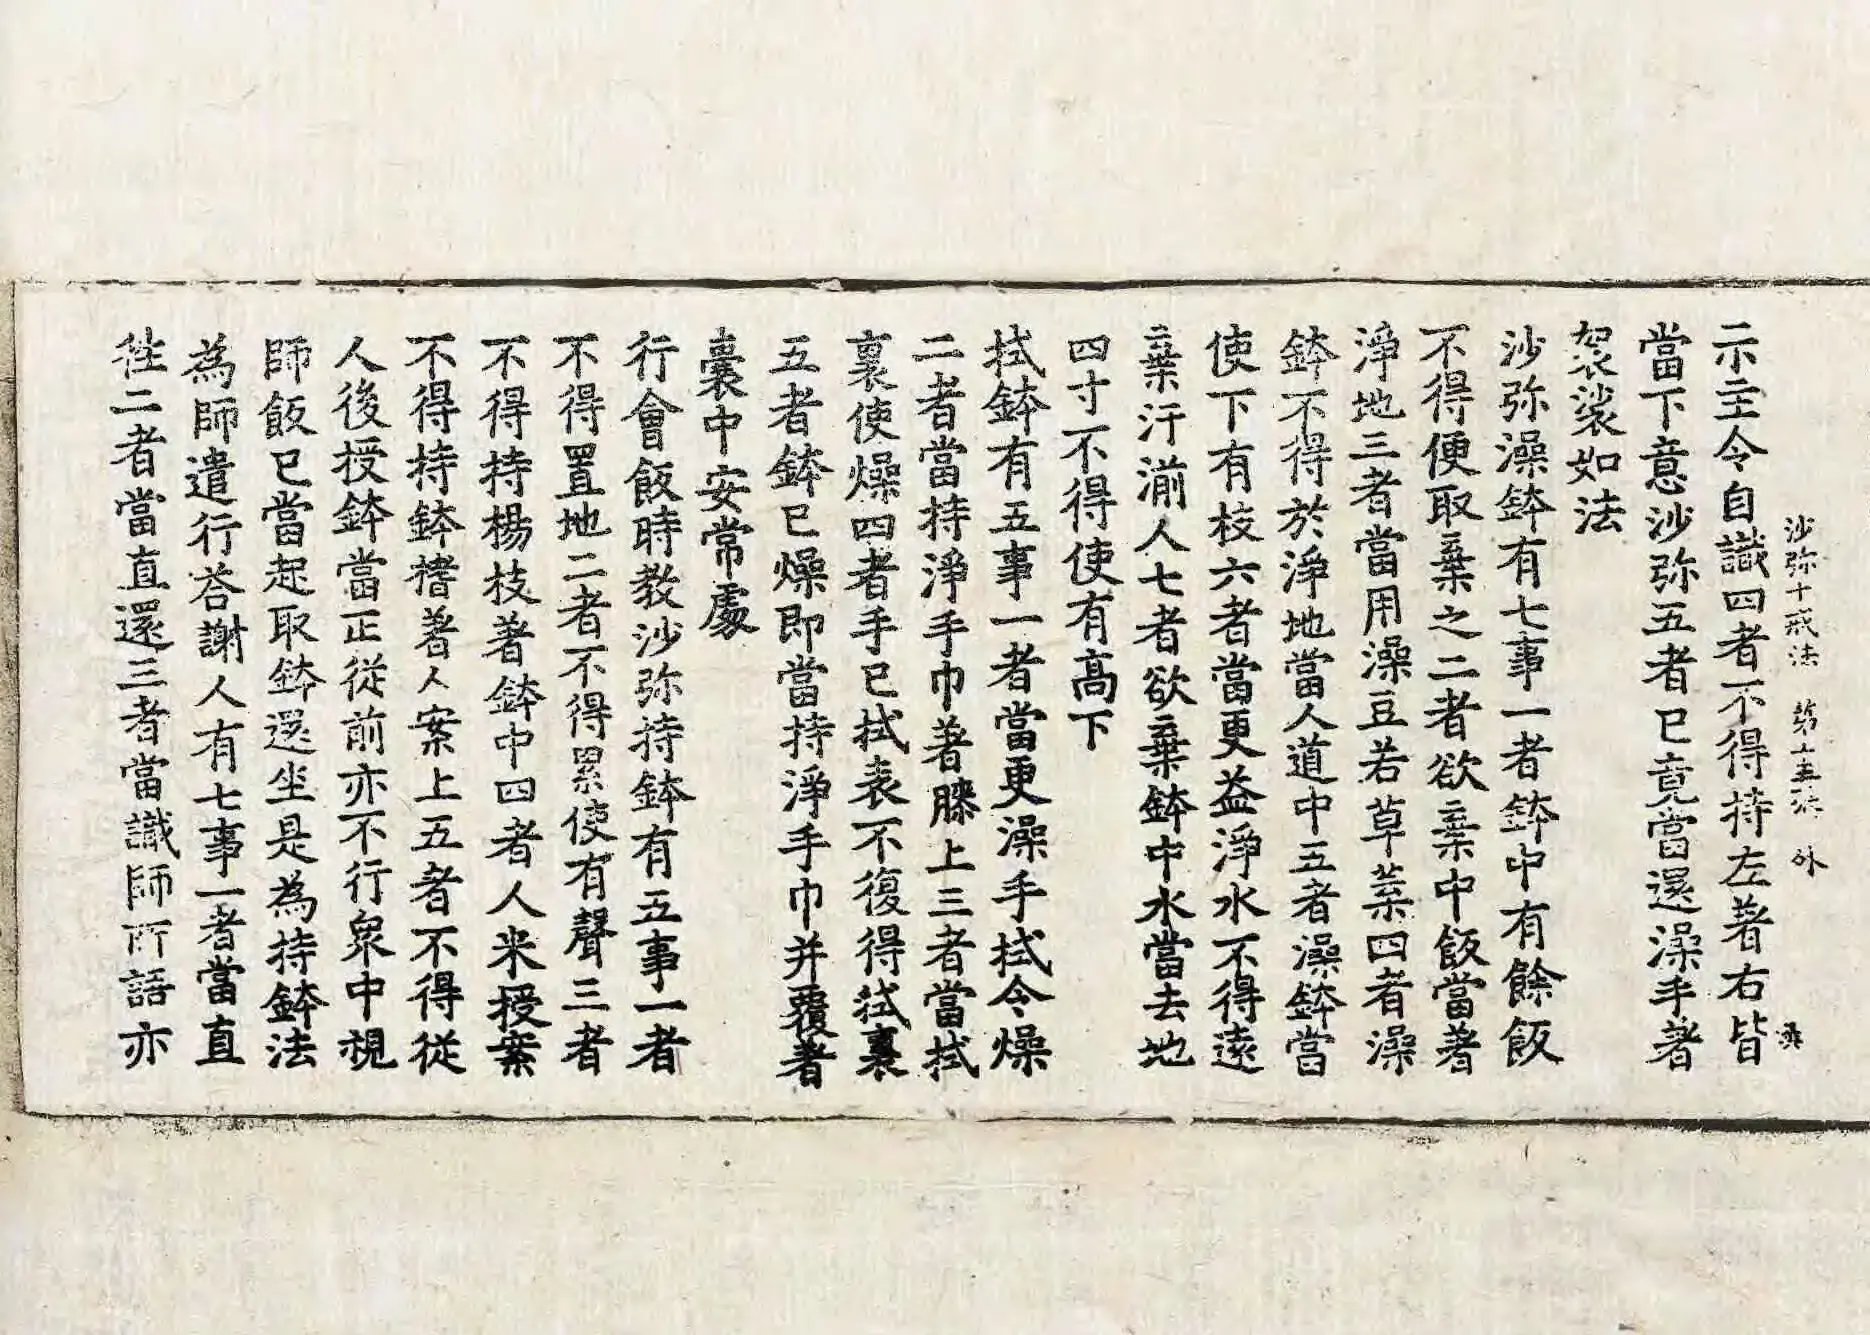 沙弥十戒法 第十五張 外 兵
示主令自識四者不得持左著右皆
當下意沙弥五者已竟當還澡手著
袈裟如法
沙弥澡鉢有七事一者鉢中有餘飯
不得便取棄之二者欲棄中飯當著
淨地三者當用澡豆若草葉四者澡
鉢不得於淨地當人道中五者澡鉢當
使下有枝六者當更益淨水不得遠
棄汙湔人七者欲棄鉢中水當去地
四寸不得使有高下
拭鉢有五事一者當更澡手拭令燥
二者當持淨手巾著膝上三者當拭
裏使燥四者手已拭表不復得拭裏
五者鉢已燥即當持淨手巾并覆著
囊中安常處
行會飯時教沙弥持鉢有五事一者
不得置地二者不得累使有聲三者
不得持楊枝著鉢中四者人来授案
不得持鉢揩著人案上五者不得從
人後授鉢當正從前亦不行衆中視
師飯已當起取鉢還坐是為持鉢法
為師遣行荅謝人有七事一者當直
徃二者當直還三者當識師所語亦